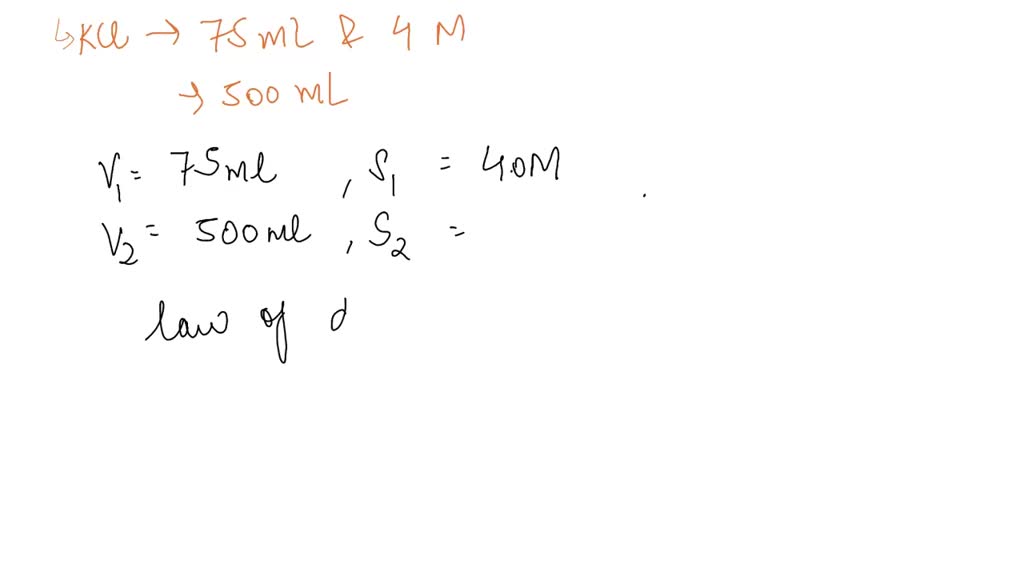 ↳ KCl → 75 mL & 4 M
→ 500 mL
V₁ = 75 ml , S₁ = 4.0M
V₂ = 500 ml , S₂ =
law of d